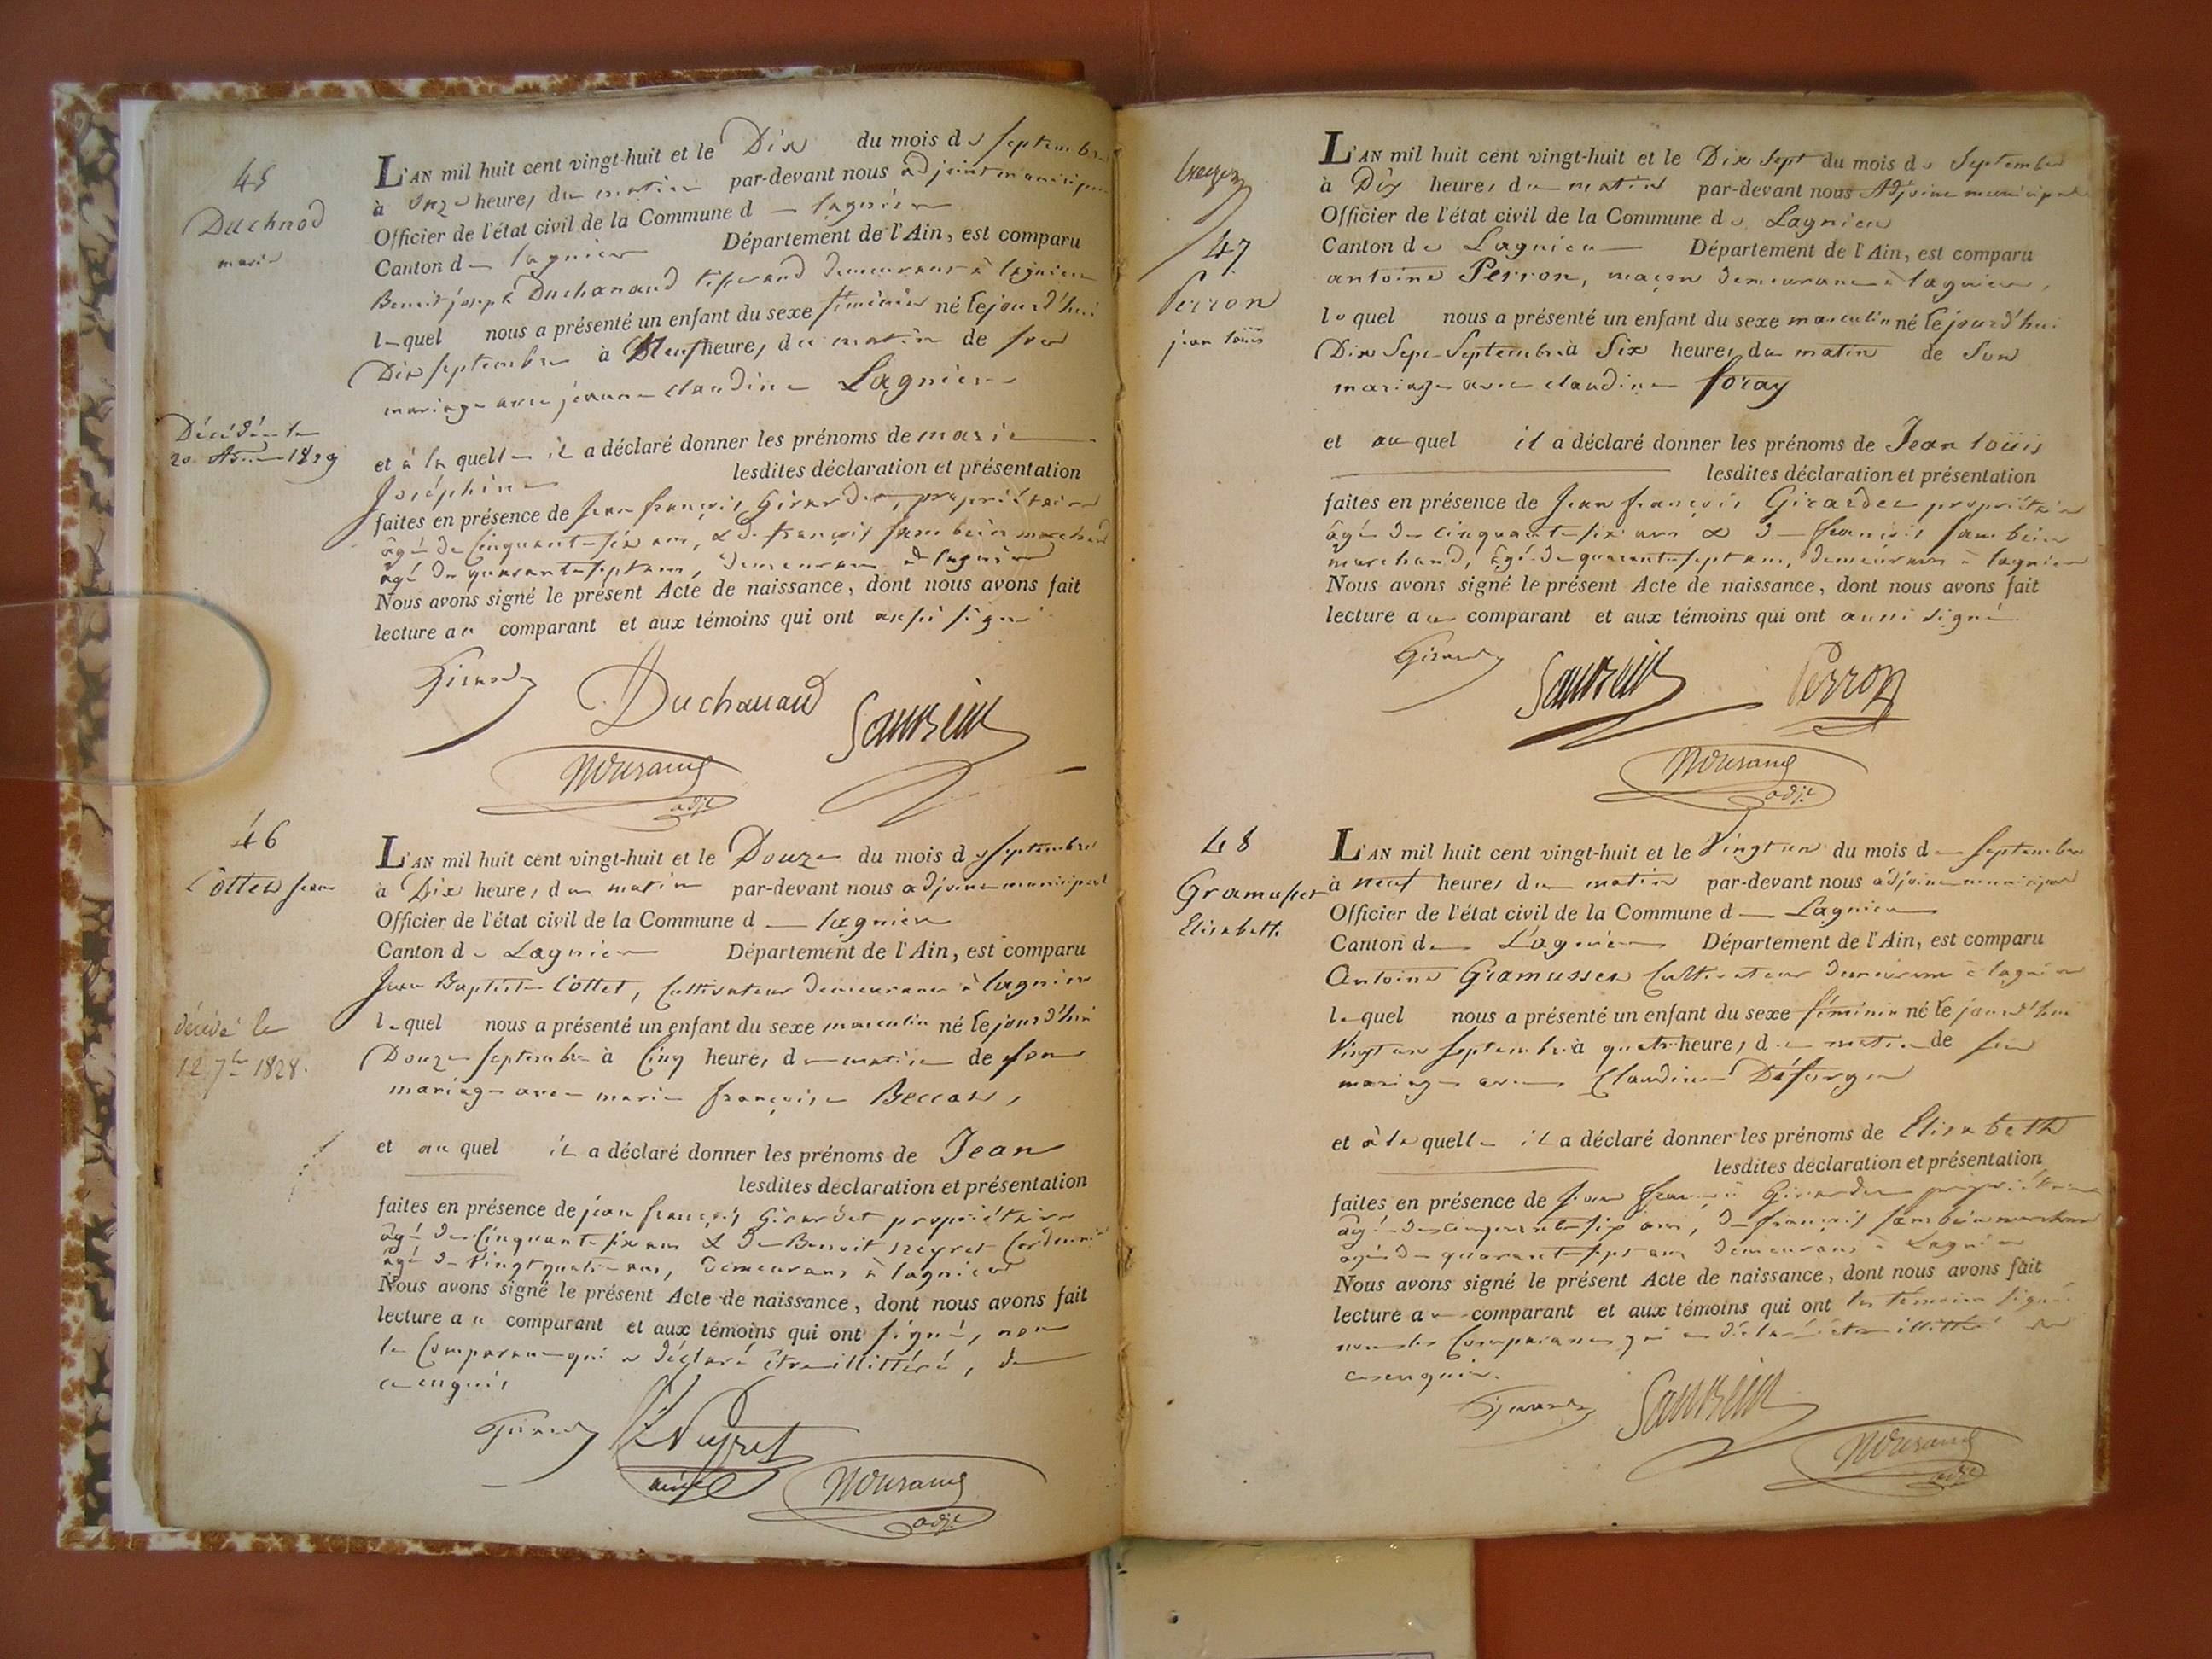 45
Duchnod
marie
L'AN mil huit cent vingt-huit et le Dix du mois de septembre
à onze heures du matin par-devant nous adjoint municipal
Officier de l'état civil de la Commune de lagnieu
Canton de lagnieu Département de l'Ain, est comparu
Benoit joseph Duchanaud tisserand demeurant à lagnieu
lequel nous a présenté un enfant du sexe féminin né lejourd'hui
Dix septembre à Neuf heures du matin de son
mariage avec jeanne claudine Lagnier
Décédée le
20 1829
et à laquelle il a déclaré donner les prénoms de marie
Joséphine lesdites déclaration et présentation
faites en présence de Jean françois Girardet, propriétaire
âgé de Cinquante six ans, & de françois Sambein marchand
âgé de quarante sept ans, demeurans à lagnieu
Nous avons signé le présent Acte de naissance, dont nous avons fait
lecture au comparant et aux témoins qui ont aussi signé
Girardet Duchanaud Sambein
adjt
46
Cottet jean
L'AN mil huit cent vingt-huit et le Douze du mois de septembre
à Dix heures du matin par-devant nous adjoint municipal
Officier de l'état civil de la Commune de lagnieu
Canton de Lagnieu Département de l'Ain, est comparu
Jean Baptiste Cottet, Cultivateur demeurant à lagnieu
lequel nous a présenté un enfant du sexe masculin né lejourd'hui
Douze septembre à Cinq heures du matin de son
mariage avec marie françoise Beccat,
décédé le
12 7bre 1828.
et auquel il a déclaré donner les prénoms de Jean
lesdites déclaration et présentation
faites en présence de jean françois Girardet propriétaire
âgé de Cinquante six ans & de Benoit neyret Cordonnier
âgé de Vingt quatre ans, demeurans à lagnieu
Nous avons signé le présent Acte de naissance, dont nous avons fait
lecture au comparant et aux témoins qui ont signé, non
le Comparant qui a déclaré être illittéré, de
ce enquis
Girardet Neyret
adjt
47
Perron
jean loüis
L'AN mil huit cent vingt-huit et le Dix Sept du mois de Septembre
à Dix heures du matin par-devant nous Adjoint municipal
Officier de l'état civil de la Commune de Lagnieu
Canton de Lagnieu Département de l'Ain, est comparu
antoine Perron, maçon demeurant à lagnieu,
lequel nous a présenté un enfant du sexe masculin né lejourd'hui
Dix Sept Septembre à Six heures du matin de Son
mariage avec claudine foray
et auquel il a déclaré donner les prénoms de Jean loüis
lesdites déclaration et présentation
faites en présence de Jean françois Girardet propriétaire
âgé de cinquante six ans & de françois Sambein
marchand, âgé de quarante sept ans, demeurans à lagnieu
Nous avons signé le présent Acte de naissance, dont nous avons fait
lecture au comparant et aux témoins qui ont aussi signé
Girardet Sambein Perron
adjt
48
Gramusset
Elisabeth
L'AN mil huit cent vingt-huit et le Vingt un du mois de septembre
à neuf heures du matin par-devant nous adjoint municipal
Officier de l'état civil de la Commune de Lagnieu
Canton de Lagnieu Département de l'Ain, est comparu
Antoine Gramusset Cultivateur demeurant à lagnieu
lequel nous a présenté un enfant du sexe féminin né lejourd'hui
Vingt un septembre à quatre heures du matin de son
mariage avec Claudine Déforge
et à laquelle il a déclaré donner les prénoms de Elisabeth
lesdites déclaration et présentation
faites en présence de Jean françois Girardet propriétaire
âgé de cinquante six ans, de françois Sambein marchand
âgé de quarante sept ans demeurans à Lagnieu
Nous avons signé le présent Acte de naissance, dont nous avons fait
lecture au comparant et aux témoins qui ont les témoins signé
non le Comparant qui a déclaré être illittéré de
ce enquis.
Girardet Sambein
adjt